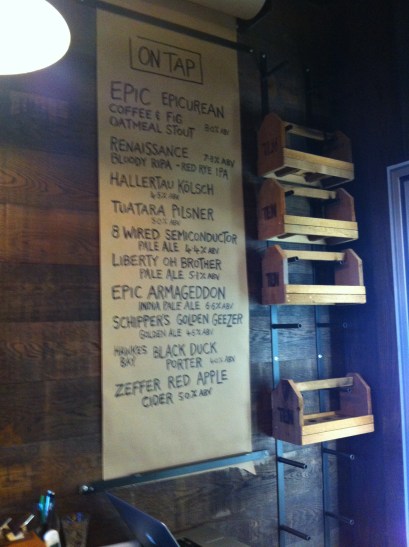 ON TAP
EPIC EPICUREAN
COFFEE & FIG
OATMEAL STOUT 8.0% ABV
RENAISSANCE 7.3% ABV
BLOODY RIPA - RED RYE IPA
HALLERTAU KÖLSCH
4.5% ABV
TUATARA PILSNER
5.0% ABV
8 WIRED SEMICONDUCTOR
PALE ALE 4.4% ABV
LIBERTY OH BROTHER
PALE ALE 5.1% ABV
EPIC ARMAGEDDON
INDIA PALE ALE 6.6% ABV
SCHIPPER'S GOLDEN GEEZER
GOLDEN ALE 4.5% ABV
HAWKES BAY BLACK DUCK
PORTER ABV
ZEFFER RED APPLE
CIDER 5.0% ABV